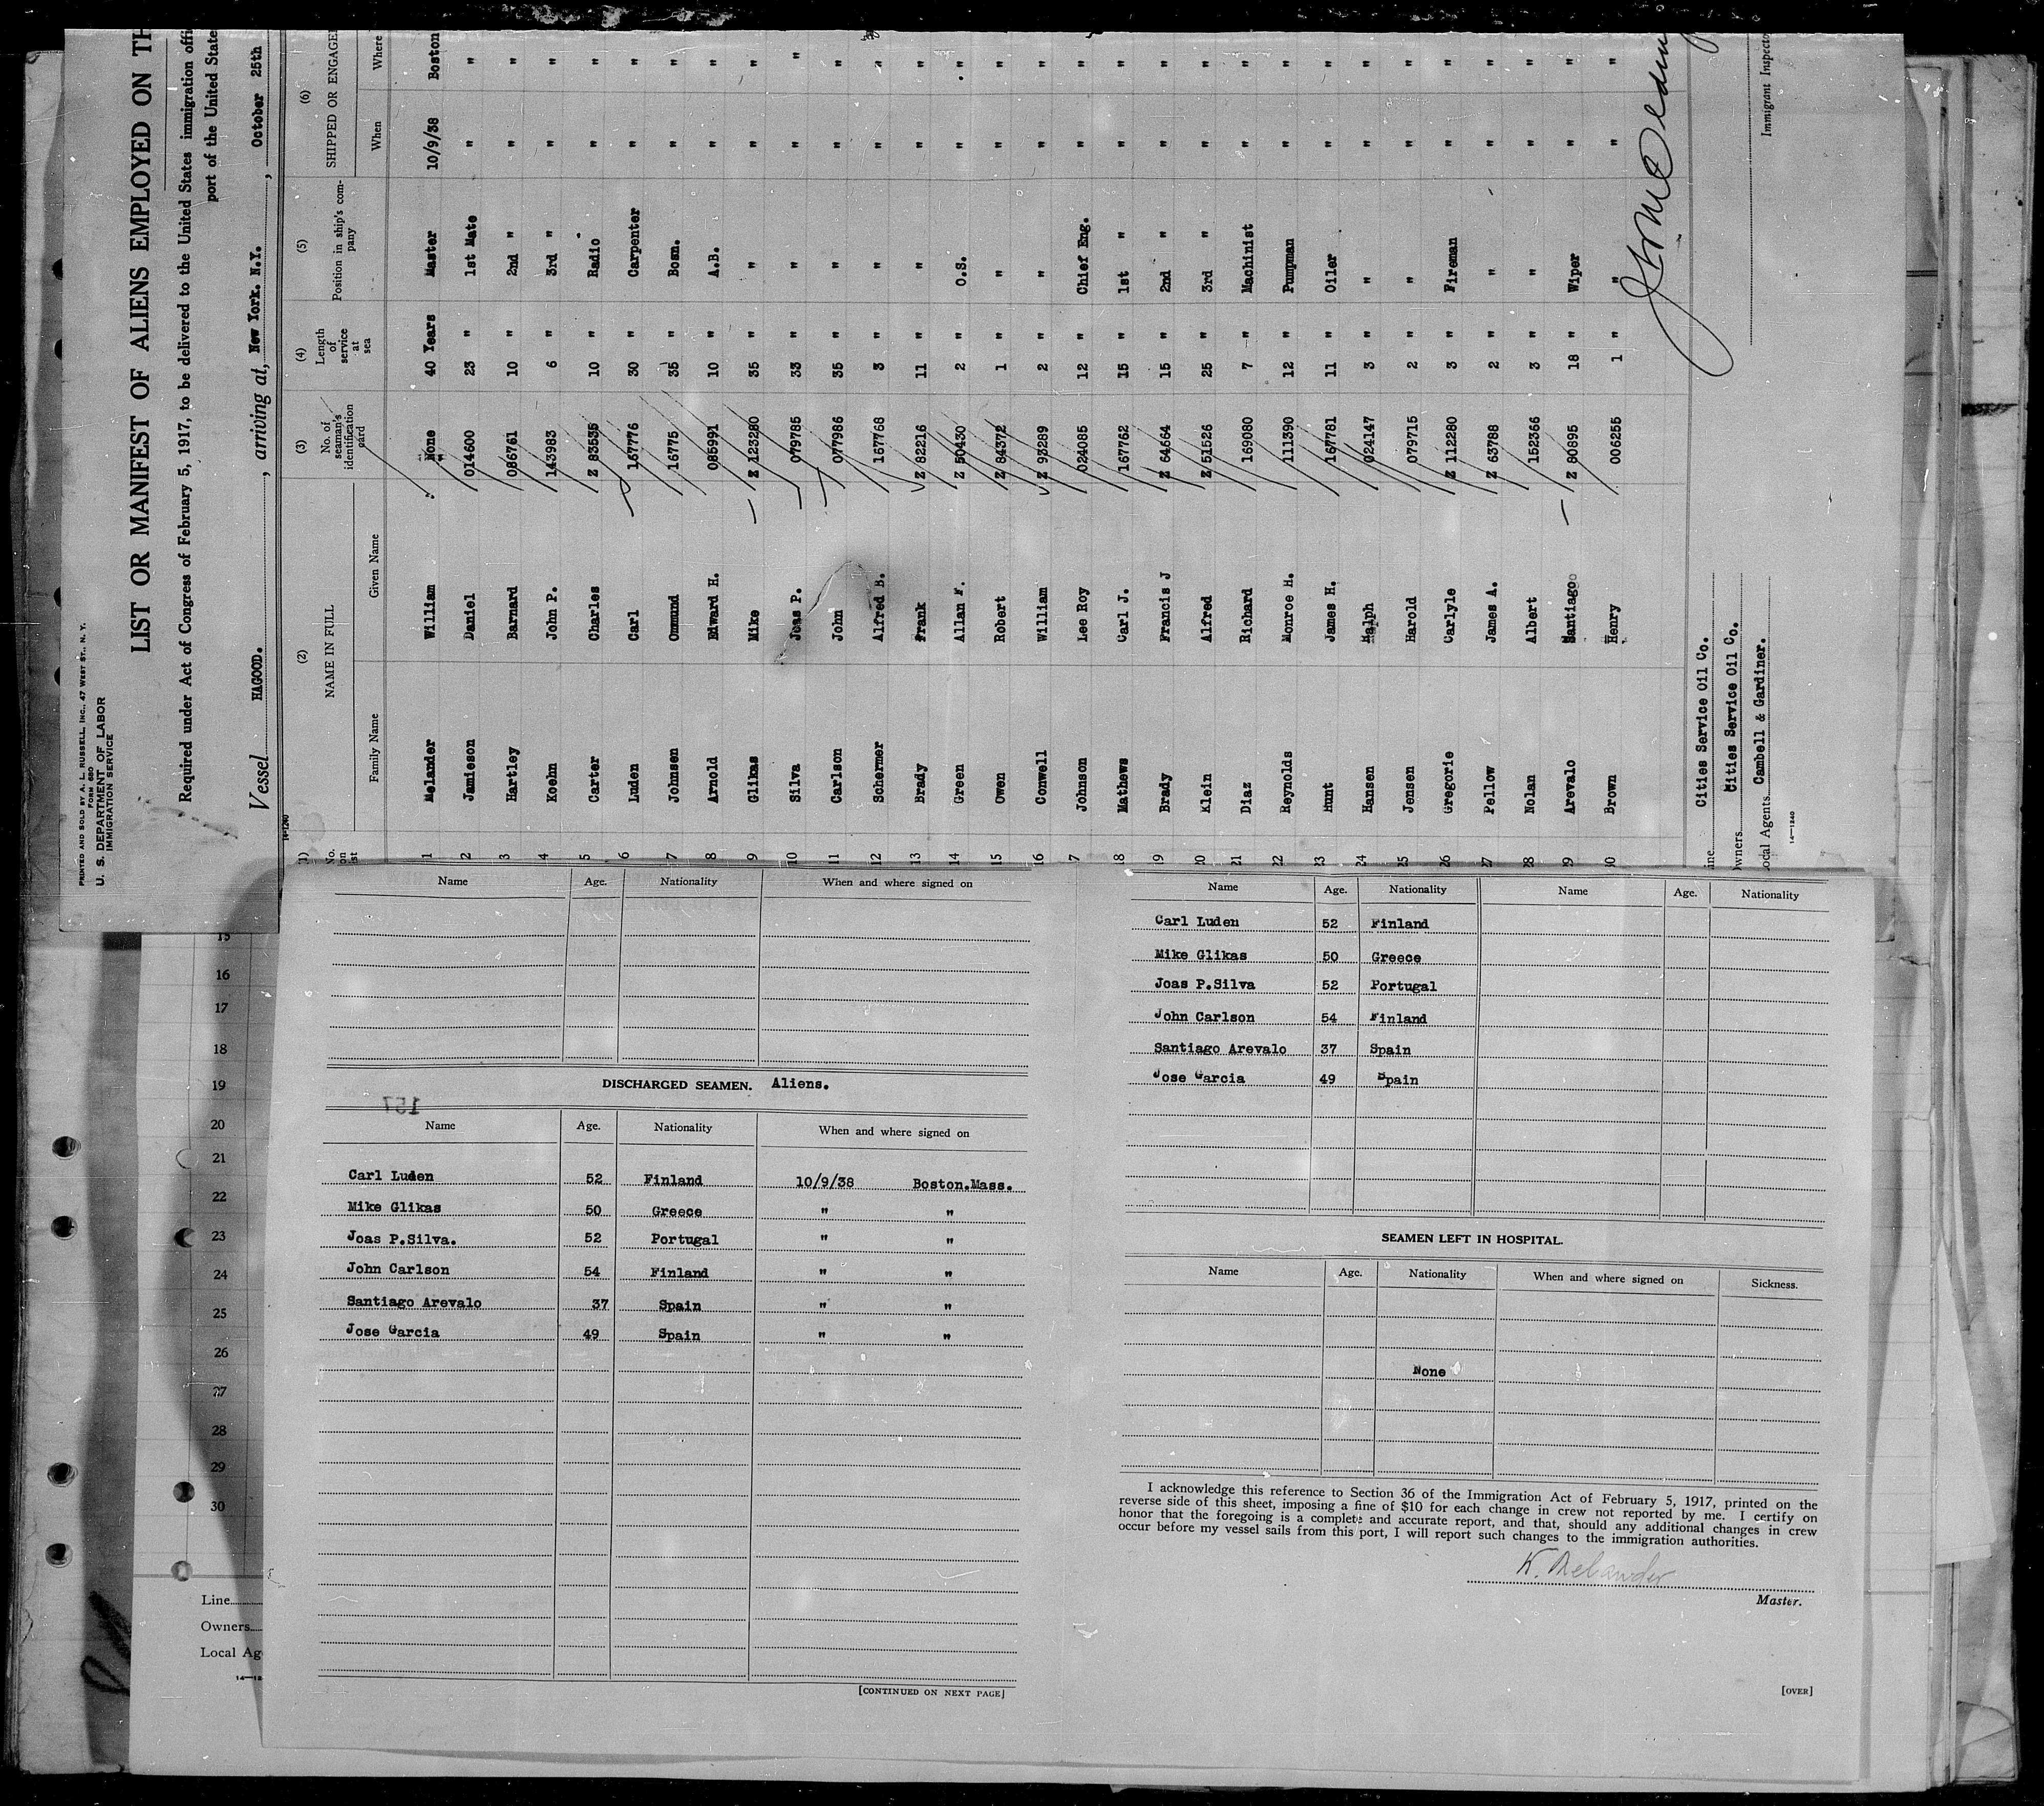 PRINTED AND SOLD BY A. L. RUSSELL, INC., 47 WEST ST., N. Y.
FORM 680
U. S. DEPARTMENT OF LABOR
IMMIGRATION SERVICE
LIST OR MANIFEST OF ALIENS EMPLOYED ON TH
Required under Act of Congress of February 5, 1917, to be delivered to the United States immigration offi
port of the United State
Vessel HAGOOD. , arriving at, New York. N.Y. , October 25th
14-1240
(1) (2) (3) (4) (5) (6)
No. on NAME IN FULL No. of seaman's identification card Length of service at sea Position in ship's company SHIPPED OR ENGAGED
Family Name Given Name When Where
1 Melander William None 40 Years Master 10/9/38 Boston
2 Jamieson Daniel 014600 23 " 1st Mate " "
3 Hartley Barnard 086761 10 " 2nd " " "
4 Koehn John P. 143983 6 " 3rd " " "
5 Carter Charles Z 83535 10 " Radio " "
6 Luden Carl 167776 30 " Carpenter " "
7 Johnsen Ommund 16775 35 " Bosn. " "
8 Arnold Edward H. 085991 10 " A.B. " "
9 Glikas Mike Z 123280 35 " " " "
10 Silva Joas P. 079785 33 " " " "
11 Carlson John 077986 35 " " " "
12 Schermer Alfred B. 167768 3 " " " "
13 Brady Frank Z 82216 11 " " " "
14 Green Allan F. Z 50430 2 " O.S. " "
15 Owen Robert Z 84372 1 " " " "
16 Conwell William Z 93289 2 " " " "
17 Johnson Lee Roy 024085 12 " Chief Eng. " "
18 Mathews Carl J. 167762 15 " 1st " " "
19 Brady Francis J Z 64664 15 " 2nd " " "
20 Klein Alfred Z 51526 25 " 3rd " " "
21 Diaz Richard 169080 7 " Machinist " "
22 Reynolds Monroe H. 111390 12 " Pumpman " "
23 Hunt James H. 167781 11 " Oiler " "
24 Hansen Ralph 024147 3 " " " "
25 Jensen Harold 079715 2 " " " "
26 Gregorie Carlyle Z 112280 3 " Fireman " "
27 Pellow James A. Z 63788 2 " " " "
28 Nolan Albert 152366 3 " " " "
29 Arevalo Santiago Z 80895 18 " Wiper " "
30 Brown Henry 006255 1 " " " "
Line Cities Service Oil Co.
Owners Cities Service Oil Co.
Local Agents Cambell & Gardiner.
14-1240
Immigrant Inspecto
15
16
17
18
19
20
21
22
23
24
25
26
27
28
29
30
Line
Owners
Local Ag
Name Age. Nationality When and where signed on
DISCHARGED SEAMEN. Aliens.
157
Name Age. Nationality When and where signed on
Carl Luden 52 Finland 10/9/38 Boston.Mass.
Mike Glikas 50 Greece " "
Joas P.Silva. 52 Portugal " "
John Carlson 54 Finland " "
Santiago Arevalo 37 Spain " "
Jose Garcia 49 Spain " "
[CONTINUED ON NEXT PAGE]
Name Age. Nationality Name Age. Nationality
Carl Luden 52 Finland
Mike Glikas 50 Greece
Joas P.Silva 52 Portugal
John Carlson 54 Finland
Santiago Arevalo 37 Spain
Jose Garcia 49 Spain
SEAMEN LEFT IN HOSPITAL.
Name Age. Nationality When and where signed on Sickness.
None
I acknowledge this reference to Section 36 of the Immigration Act of February 5, 1917, printed on the
reverse side of this sheet, imposing a fine of $10 for each change in crew not reported by me. I certify on
honor that the foregoing is a complete and accurate report, and that, should any additional changes in crew
occur before my vessel sails from this port, I will report such changes to the immigration authorities.
W. Melander
Master.
[OVER]